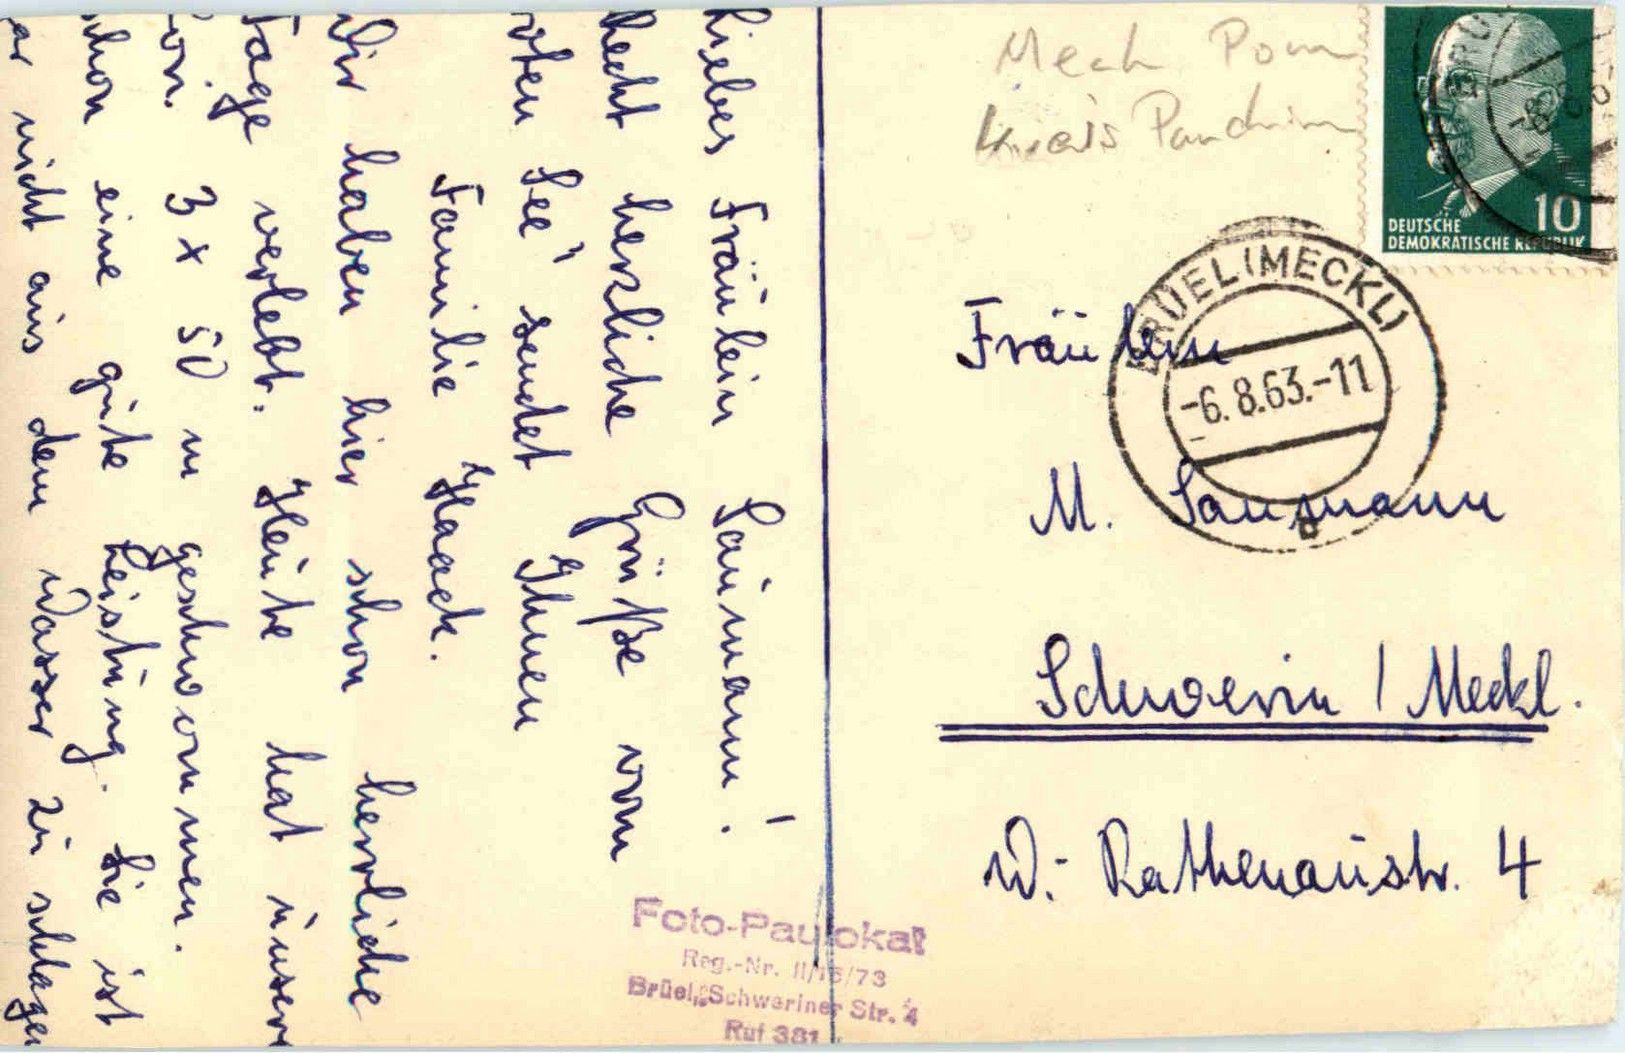 Liebes Fräulein Saumann!
Recht herzliche Grüße vom
"roten See" sendet Ihnen
Familie Haack.
Wir haben hier schon herrliche
Tage verlebt. Heute hat unser
3 x 50 m geschwommen.
schon eine gute Leistung. Sie ist
gar nicht aus dem Wasser zu schlagen
Meck Pom
Kreis Parchim
DEUTSCHE
DEMOKRATISCHE REPUBLIK
10
BRÜEL (MECKL)
-6.8.63.-11
b
Fräulein
M. Saumann
Schwerin / Meckl.
W.-Rathenaustr. 4
Foto-Paulokat
Reg.-Nr. II/15/73
Brüel, Schweriner Str. 4
Ruf 381